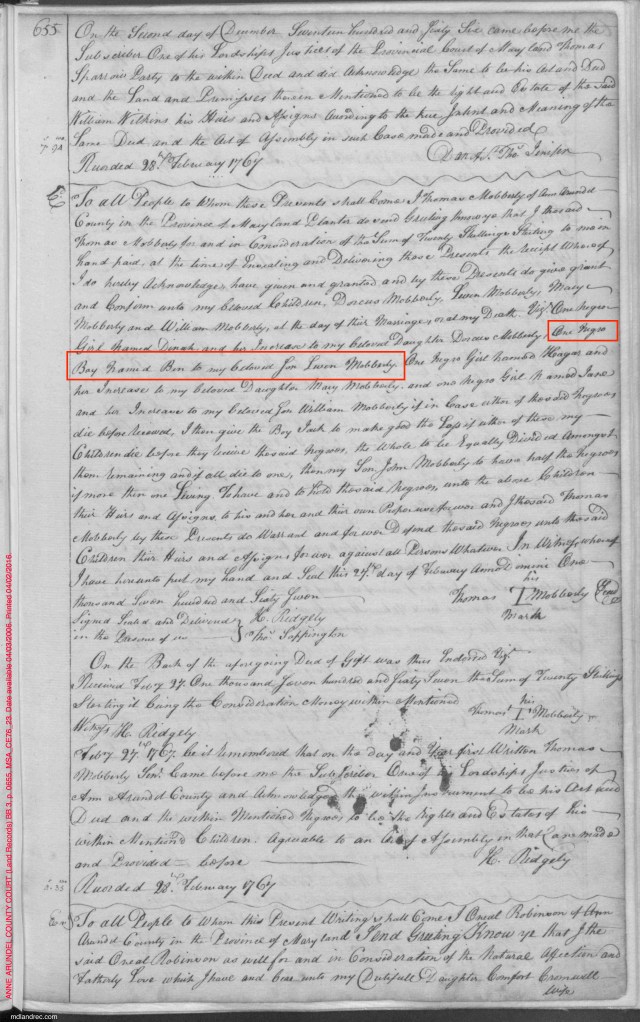 655
On the Second day of December Seventeen hundred and Sixty Six came before me the
Subscriber One of his Lordships Justices of the Provincial Court of Maryland Thomas
Sparrow Party to the within Deed and did Acknowledge the Same to be his Act and Deed
and the Land and Premisses therein Mentioned to be the right and Estate of the said
William Wilkins his Heirs and Assigns According to the true Intent and Meaning of the
Same Deed and the Act of Assembly in such Case made and Provided
Recorded 28th February 1767
Danl. of St. Thos. Jenifer
To all People to Whom these Presents shall Come, I Thomas Mobberly of Ann Arundel
County in the Province of Maryland Planter do send Greeting know ye that I the said
Thomas Mobberly for and in Consideration of the Sum of Twenty Shillings Sterling to me in
hand paid, at the time of Ensealing and Delivering these Presents the receipt whereof
I do hereby Acknowledge, have given and granted and by these Presents do give grant
and Confirm unto my beloved Children, Dorcus Mobberly, Lewen Mobberly, Mary
Mobberly and William Mobberly, at the day of their Marriage, or at my Death Vizt. One negro
Girl Named Dinah and her Increase to my beloved Daughter Dorcus Mobberly, One Negro
Boy Named Ben to my beloved Son Lewen Mobberly. One Negro Girl named Hagar and
her Increase to my beloved Daughter Mary Mobberly. and one Negro Girl Named Jane
and her Increase to my beloved Son William Mobberly if in Case either of the said Negroes
die before received, I then give the Boy Jack to make good the Loss if either of these my
Children die before they receive the said Negroes, the whole to be Equally Divided Amongst
them remaining and if all die to one, then my Son John Mobberly to have half the Negroes
if more then one Living To have and to hold the said Negroes, unto the above Children
their Heirs and Assigns, to his and her and their own Proper use for ever and I the said Thomas
Mobberly by these Presents do Warrant and for ever Defend the said Negroes unto the said
Children their Heirs and Assigns for ever against all Persons Whatever In Witness whereof
I have hereunto put my hand and Seal this 27th day of February Anno Domini One
thousand Seven hundred and Sixty Seven
his
Thomas T Mobberly Seal
Mark
Signed Sealed and Delivered
in the Presence of us
H. Ridgely
Thos. Sappington
On the Back of the aforegoing Deed of Gift was thus Endorsed Vizt.
Received Feby 27. One thousand Seven hundred and Sixty Seven the Sum of Twenty Shillings
Sterling it being the Consideration Money within Mentioned
his
Thomas T Mobberly
Mark
Witness H. Ridgely
Feby. 27th 1767 be it remembered that on the day and Year first Written Thomas
Mobberly Senr. Came before me the Subscriber One of his Lordships Justices of
Ann Arundel County and Acknowledged the within Instrument to be his Act and
Deed and the within Mentioned Negroes to be the Rights and Estates of his
within Mentioned Children. Agreeable to an Act of Assembly in that Case made
and Provided before
H. Ridgely
Recorded 28th February 1767
To all People to Whom this Present Writing shall Come I Oneal Robinson of Ann
Arundel County in the Province of Maryland Send Greeting Know ye that I the
said Oneal Robinson as well for and in Consideration of the Natural Affection and
Fatherly Love which I have and bear unto my Dutifull Daughter Comfort Cromwell
Wife
ANNE ARUNDEL COUNTY COURT (Land Records) BB 3, p. 0655, MSA_CE76_23. Date available 04/03/2006. Printed 04/02/2016.
mdlandrec.com